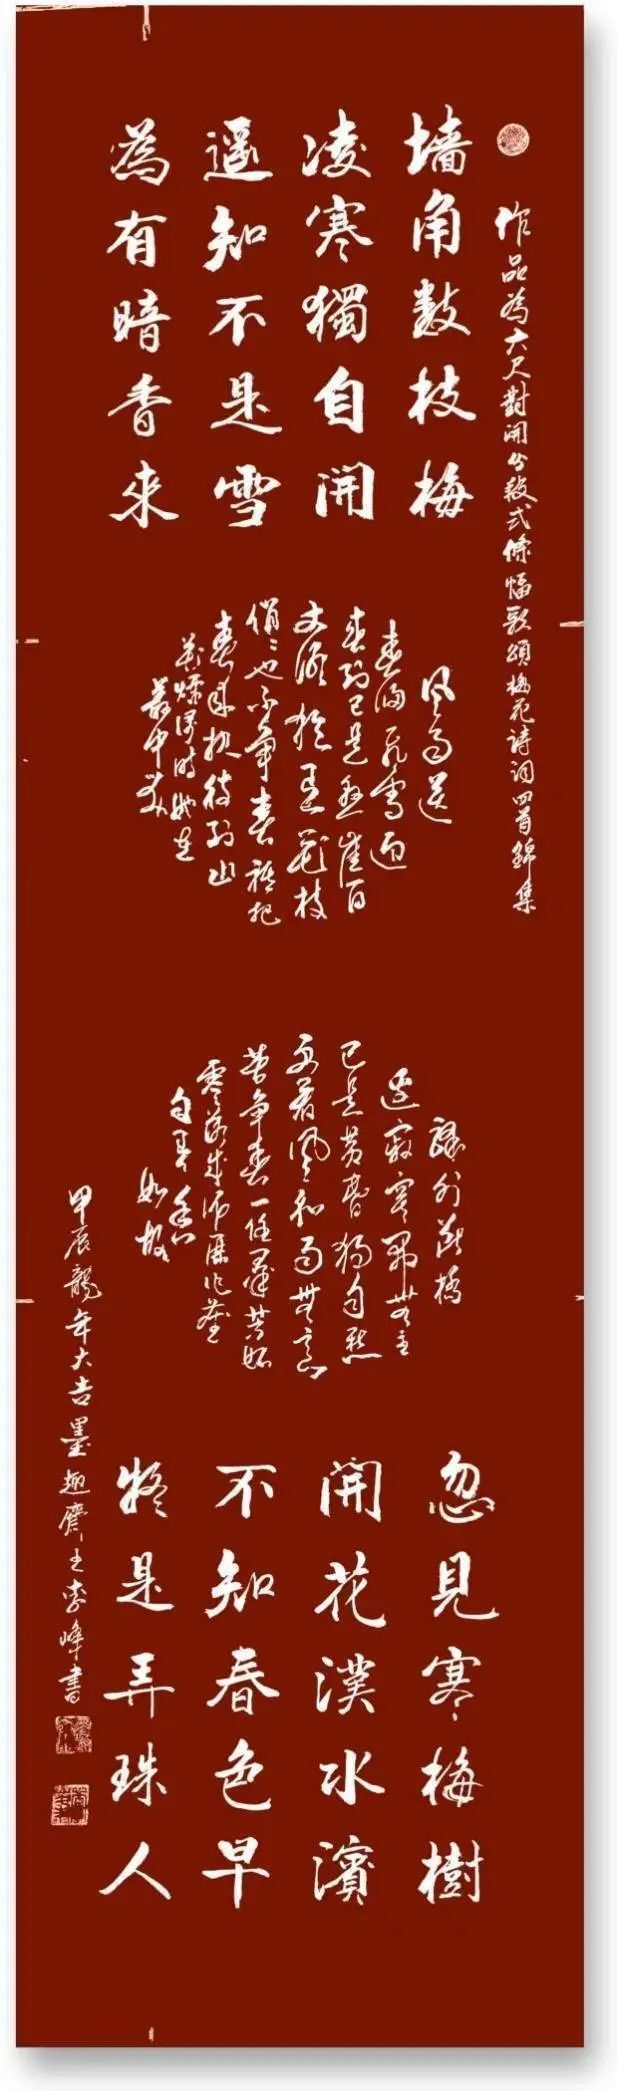 作品為六尺對開分段式條幅歌頌梅花詩詞四首錦集
墙角數枝梅
凌寒獨自開
遥知不是雪
為有暗香來
風雨送
春歸飛雪迎
春到已是懸崖百
丈冰猶有花枝
俏々也不争春祇把
春來報待到山
花爛漫時她在
叢中笑
驛外斷橋
邊寂寞開無主
已是黄昏獨自愁
更着風和雨無意
苦争春一任群芳妒
零落成泥碾作塵
只有香
如故
忽見寒梅樹
開花漢水濱
不知春色早
疑是弄珠人
甲辰龍年大吉墨趣齋主李峰書